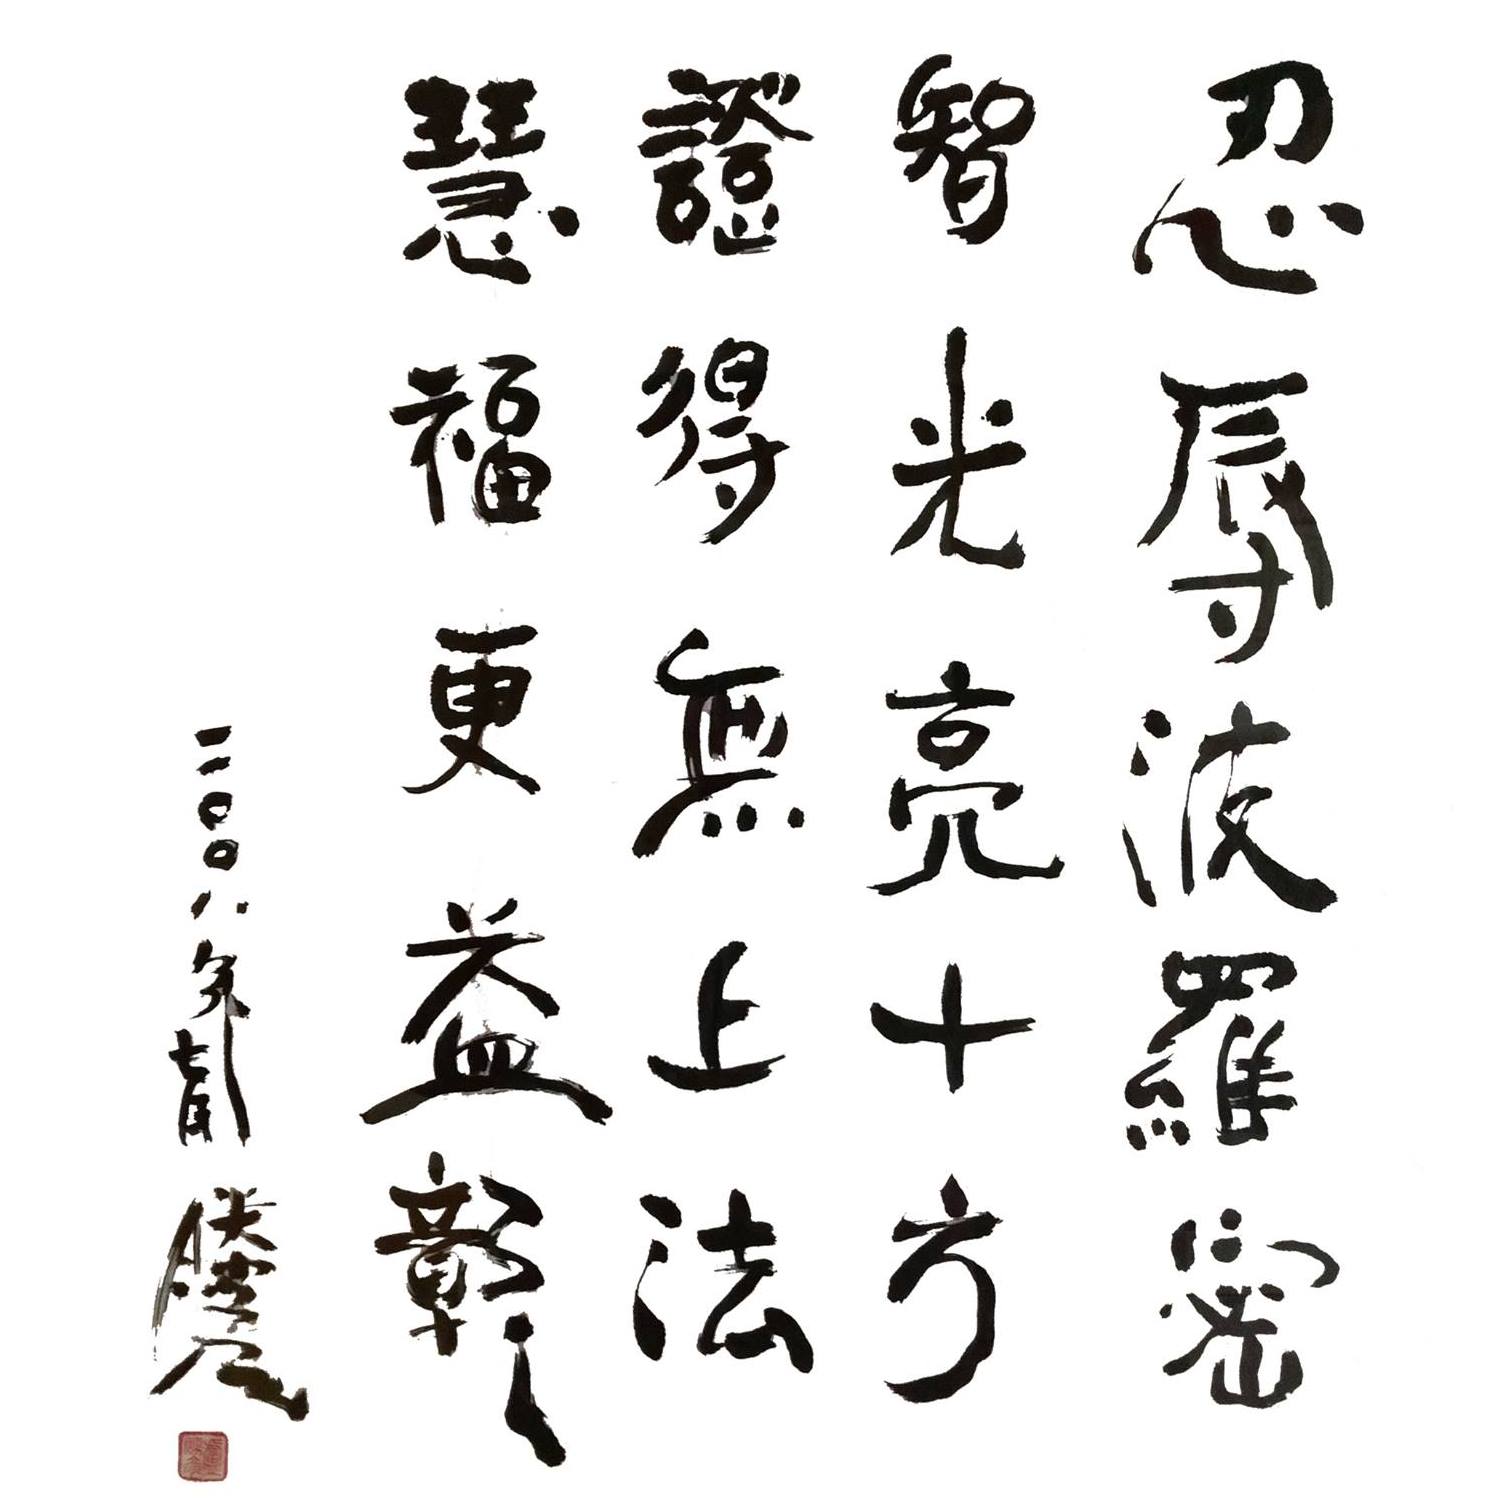 忍辱波羅密
智光亮十方
證得無上法
慧福更益彰
二００八年七月